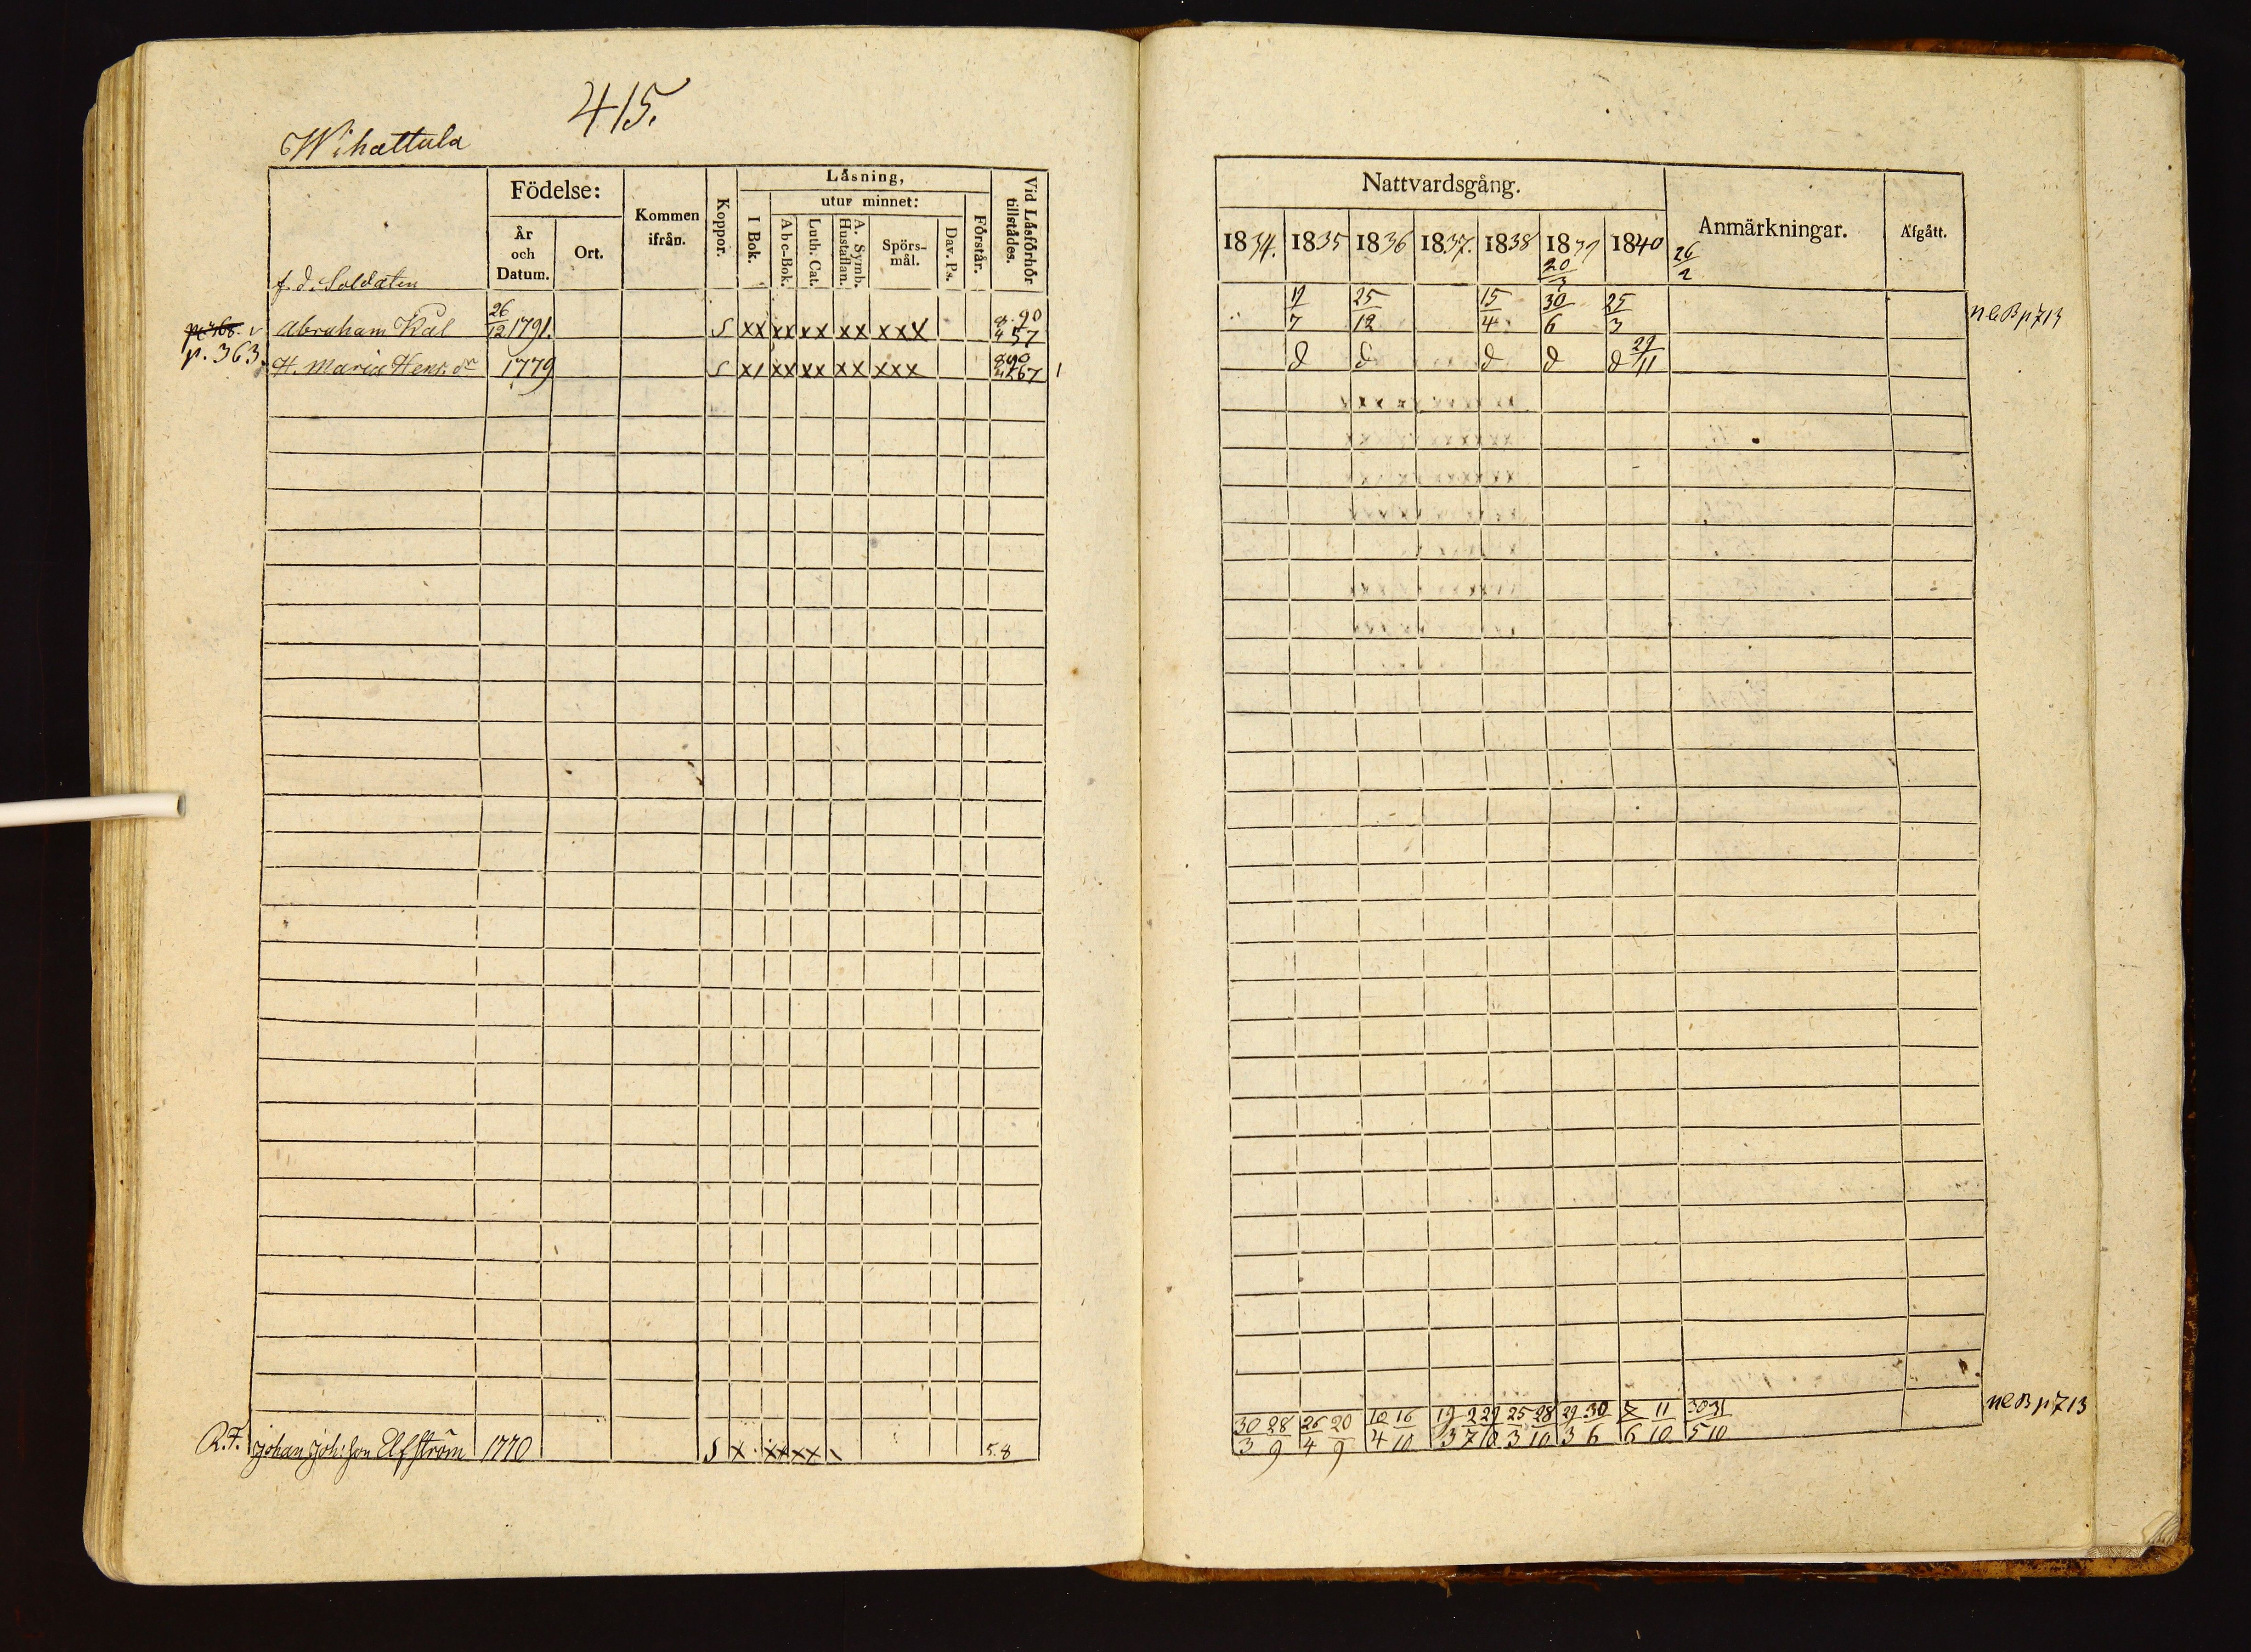 415.
Wihattula
Födelse:
Kommen ifrån.
Koppor.
Låsning,
utur minnet:
Vid Låsförhör tillstådes.
År och Datum.
Ort.
I Bok.
Abc-Bok.
Luth. Cat.
A. Symb. Hustaflan.
Spörs-mål.
Dav. Ps.
Förstår.
f. d. Soldaten
Abraham Kål 26/12 1791. S xx xx xx xx xxx
p. 363. H. Maria Henr. dr 1779 S x/ xx xx xx xxx
R.F. Johan Joh: son Elfström 1770 S x xx xx \ 5.8
Nattvardsgång.
Anmärkningar.
Afgått.
1834. 1835 1836 1837. 1838 1839 1840
20/3 26/2
25/12 15/4 30/6 25/3 n l B p 713
d d d d d 29/11
30/3 28/9 26/4 20/9 10/4 16/10 19/3 2/7 29/10 25/3 28/10 29/3 30/6 11/10 30/5 31/10 n l B p 713